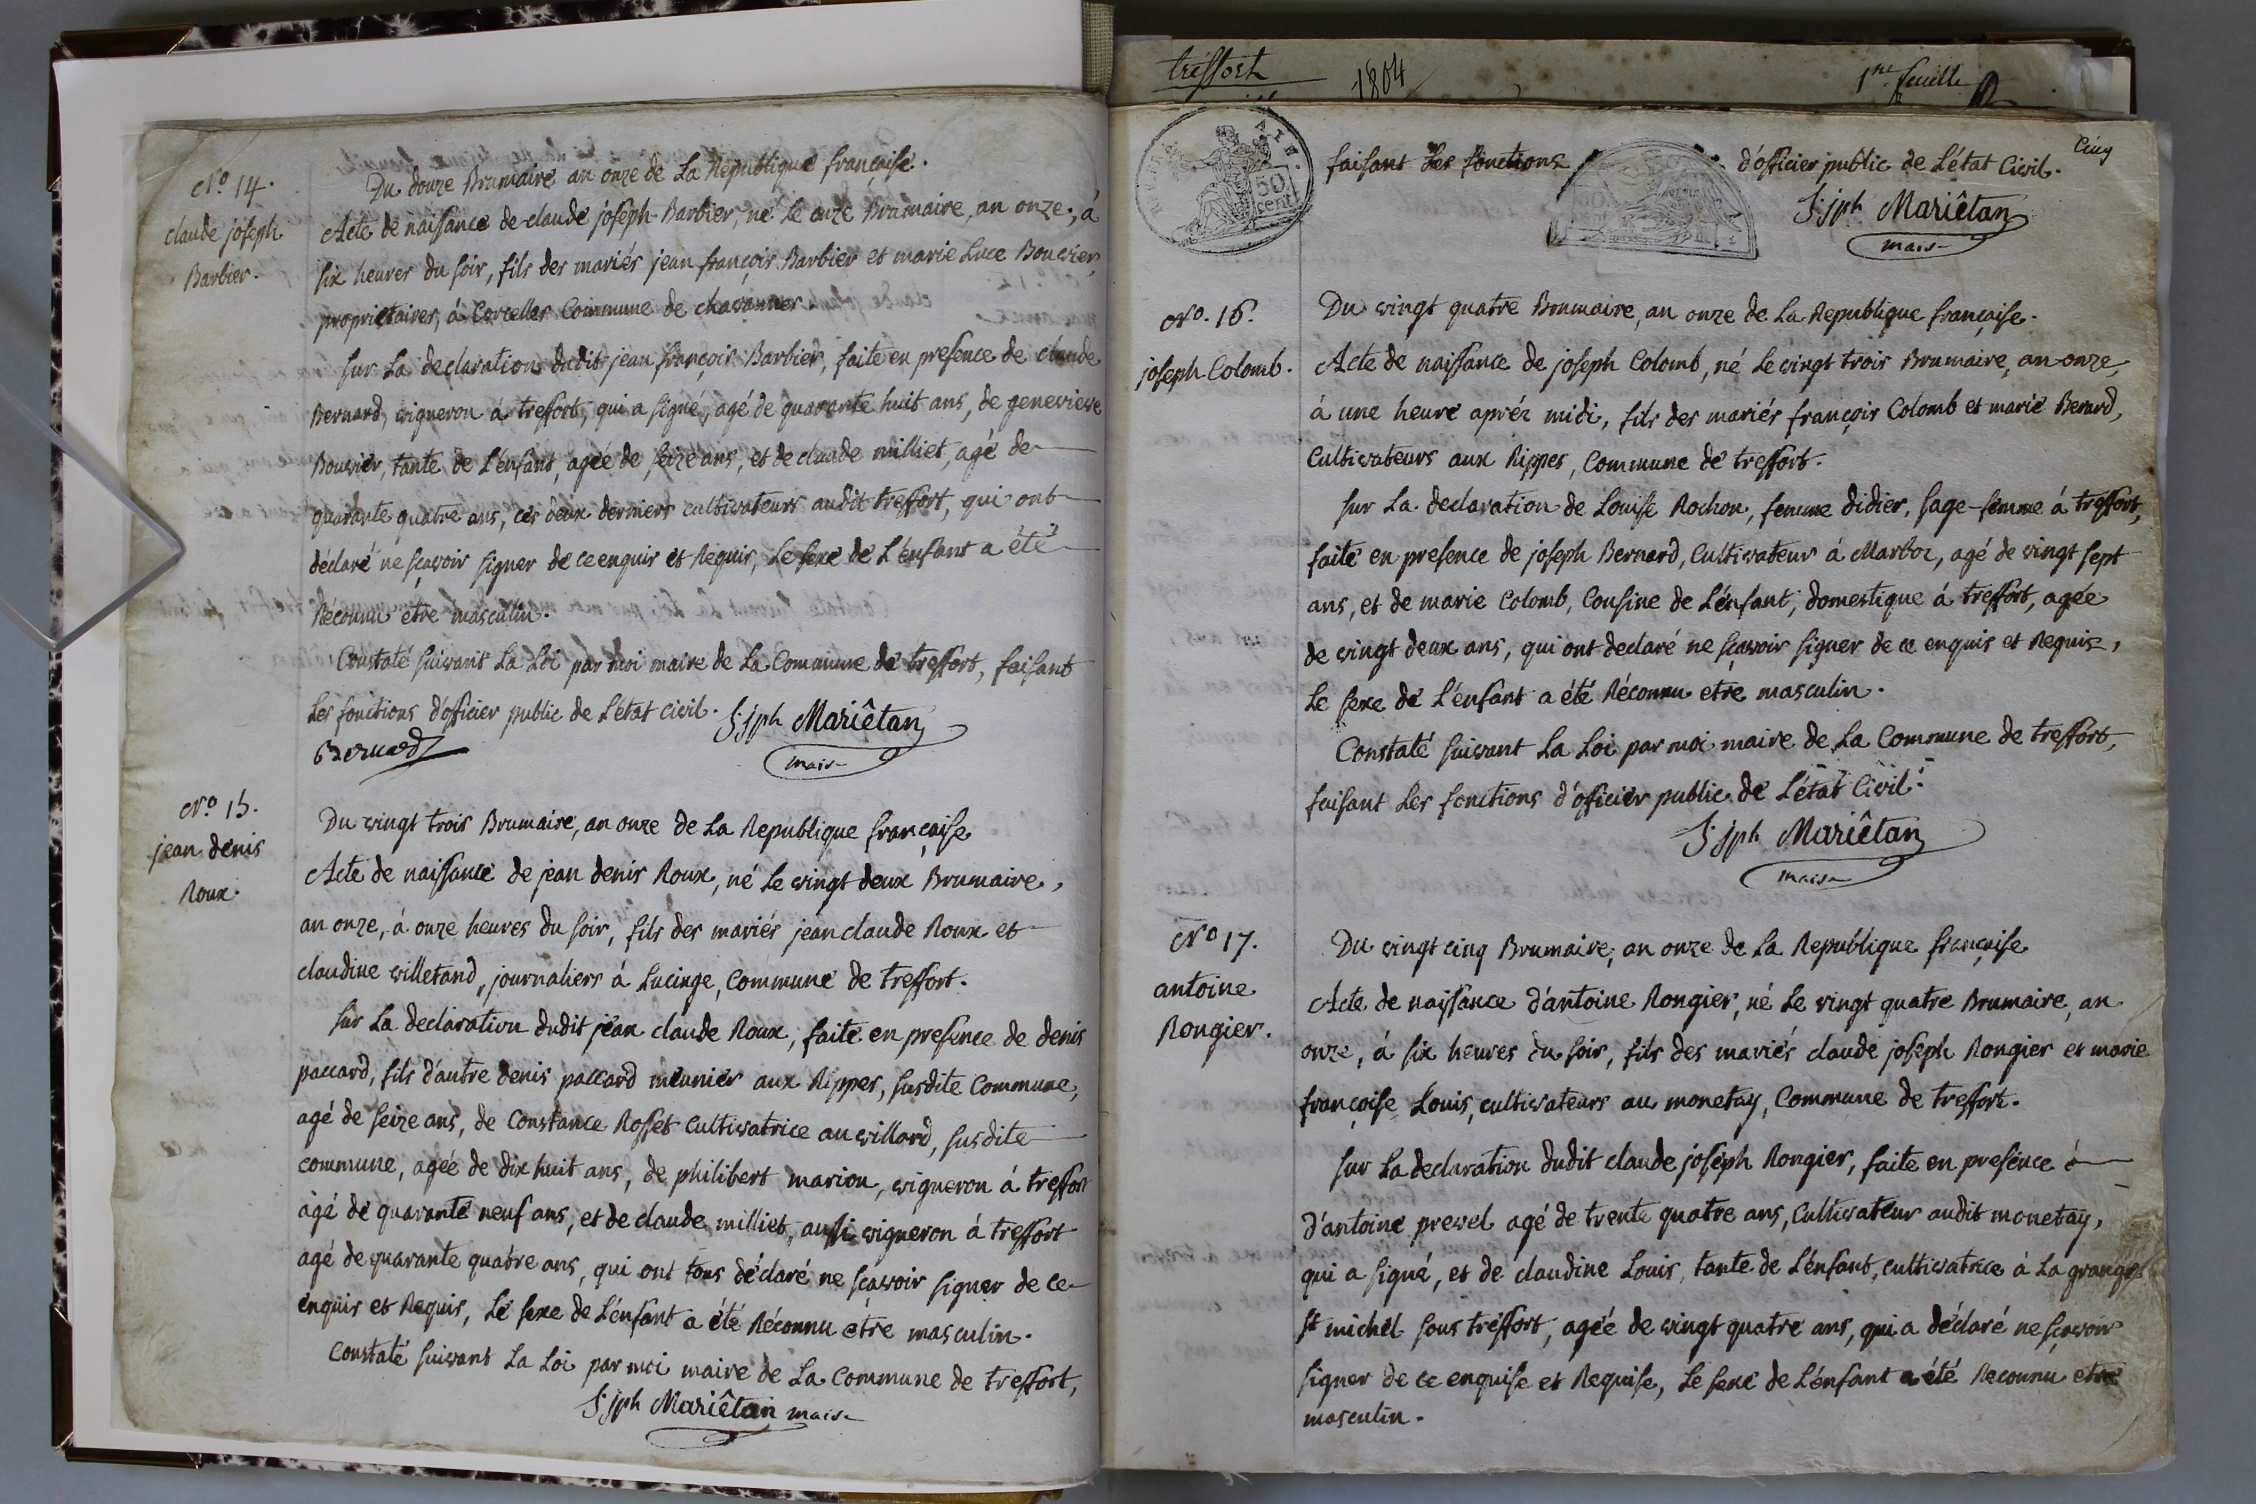 N.o 14.
claude joseph
Barbier.
Du douze Brumaire an onze de La Republique française.
Acte de naissance de claude joseph Barbier, né le onze Brumaire, an onze, à
six heures du soir, fils des mariés jean françois Barbier et marie Luce Bouvier,
proprietaires, à Corcelles Commune de chavannes.
sur La declaration dudit jean françois Barbier, faite en presence de claude
Bernard, vigneron à treffort, qui a signé, agé de quarante huit ans, de genevieve
Bouvier, tante de L'enfant, agée de seize ans, et de claude milliet, agé de
quarante quatre ans, ces deux derniers cultivateurs audit treffort, qui ont
déclaré ne sçavoir signer de ce enquis et Requis, Le sexe de L'enfant a été
Réconnu etre masculin.
Constaté suivant La Loi par moi maire de La Commune de treffort, faisant
Les fonctions d'officier public de L'état civil. J: jph Mariêtan
Bernard maire
N.o 15.
jean denis
Roux.
Du vingt trois Brumaire, an onze de La Republique française
Acte de naissance de jean denis Roux, né Le vingt deux Brumaire,
an onze, à onze heures du soir, fils des mariés jean claude Roux et
claudine villetand, journaliers à Lucinge, Commune de treffort.
sur La declaration dudit jean claude Roux, faite en presence de denis
paccard, fils d'autre denis paccard meunier aux Rippes, susdite Commune,
agé de seize ans, de Constance Rosset Cultivatrice au villard, susdite
commune, agée de dix huit ans, de philibert marion, vigneron à treffort
agé de quarante neuf ans, et de claude milliet, aussi vigneron à treffort
agé de quarante quatre ans, qui ont tous déclaré ne sçavoir signer de ce
enquis et Requis, Le sexe de L'enfant a été Réconnu etre masculin.
Constaté suivant La Loi par moi maire de La Commune de treffort,
J: jph Mariêtan maire
treffort 1804 1re feuille
cinq
AIN.
50
cent
faisant Les fonctions d'officier public de L'état Civil.
J: jph Mariêtan
maire
N.o 16.
joseph Colomb.
Du vingt quatre Brumaire, an onze de La Republique française.
Acte de naissance de joseph Colomb, né Le vingt trois Brumaire, an onze,
à une heure aprés midi, fils des mariés françois Colomb et marie Berard,
Cultivateurs aux Rippes, Commune de treffort.
sur La declaration de Louise Rochon, femme didier, sage-femme à treffort,
faite en presence de joseph Bernard, Cultivateur à Marboz, agé de vingt sept
ans, et de marie Colomb, Cousine de L'enfant, domestique à treffort, agée
de vingt deux ans, qui ont declaré ne sçavoir signer de ce enquis et Requis,
Le sexe de L'enfant a été Réconnu etre masculin.
Constaté suivant La Loi par moi maire de La Commune de treffort,
faisant Les fonctions d'officier public de L'état Civil.
J: jph Mariêtan
maire
N.o 17.
antoine
Rongier.
Du vingt cinq Brumaire, an onze de La Republique française
Acte de naissance d'antoine Rongier, né Le vingt quatre Brumaire, an
onze, à six heures du soir, fils des mariés claude joseph Rongier et marie
françoise Louis, cultivateurs au monetay, Commune de treffort.
sur La declaration dudit claude joseph Rongier, faite en presence
d'antoine prevel agé de trente quatre ans, Cultivateur audit monetay,
qui a signé, et de claudine Louis, tante de L'enfant, cultivatrice à La grange
st michel sous treffort, agée de vingt quatre ans, qui a déclaré ne sçavoir
signer de ce enquise et Requise, Le sexe de L'enfant a été Reconnu etre
masculin.